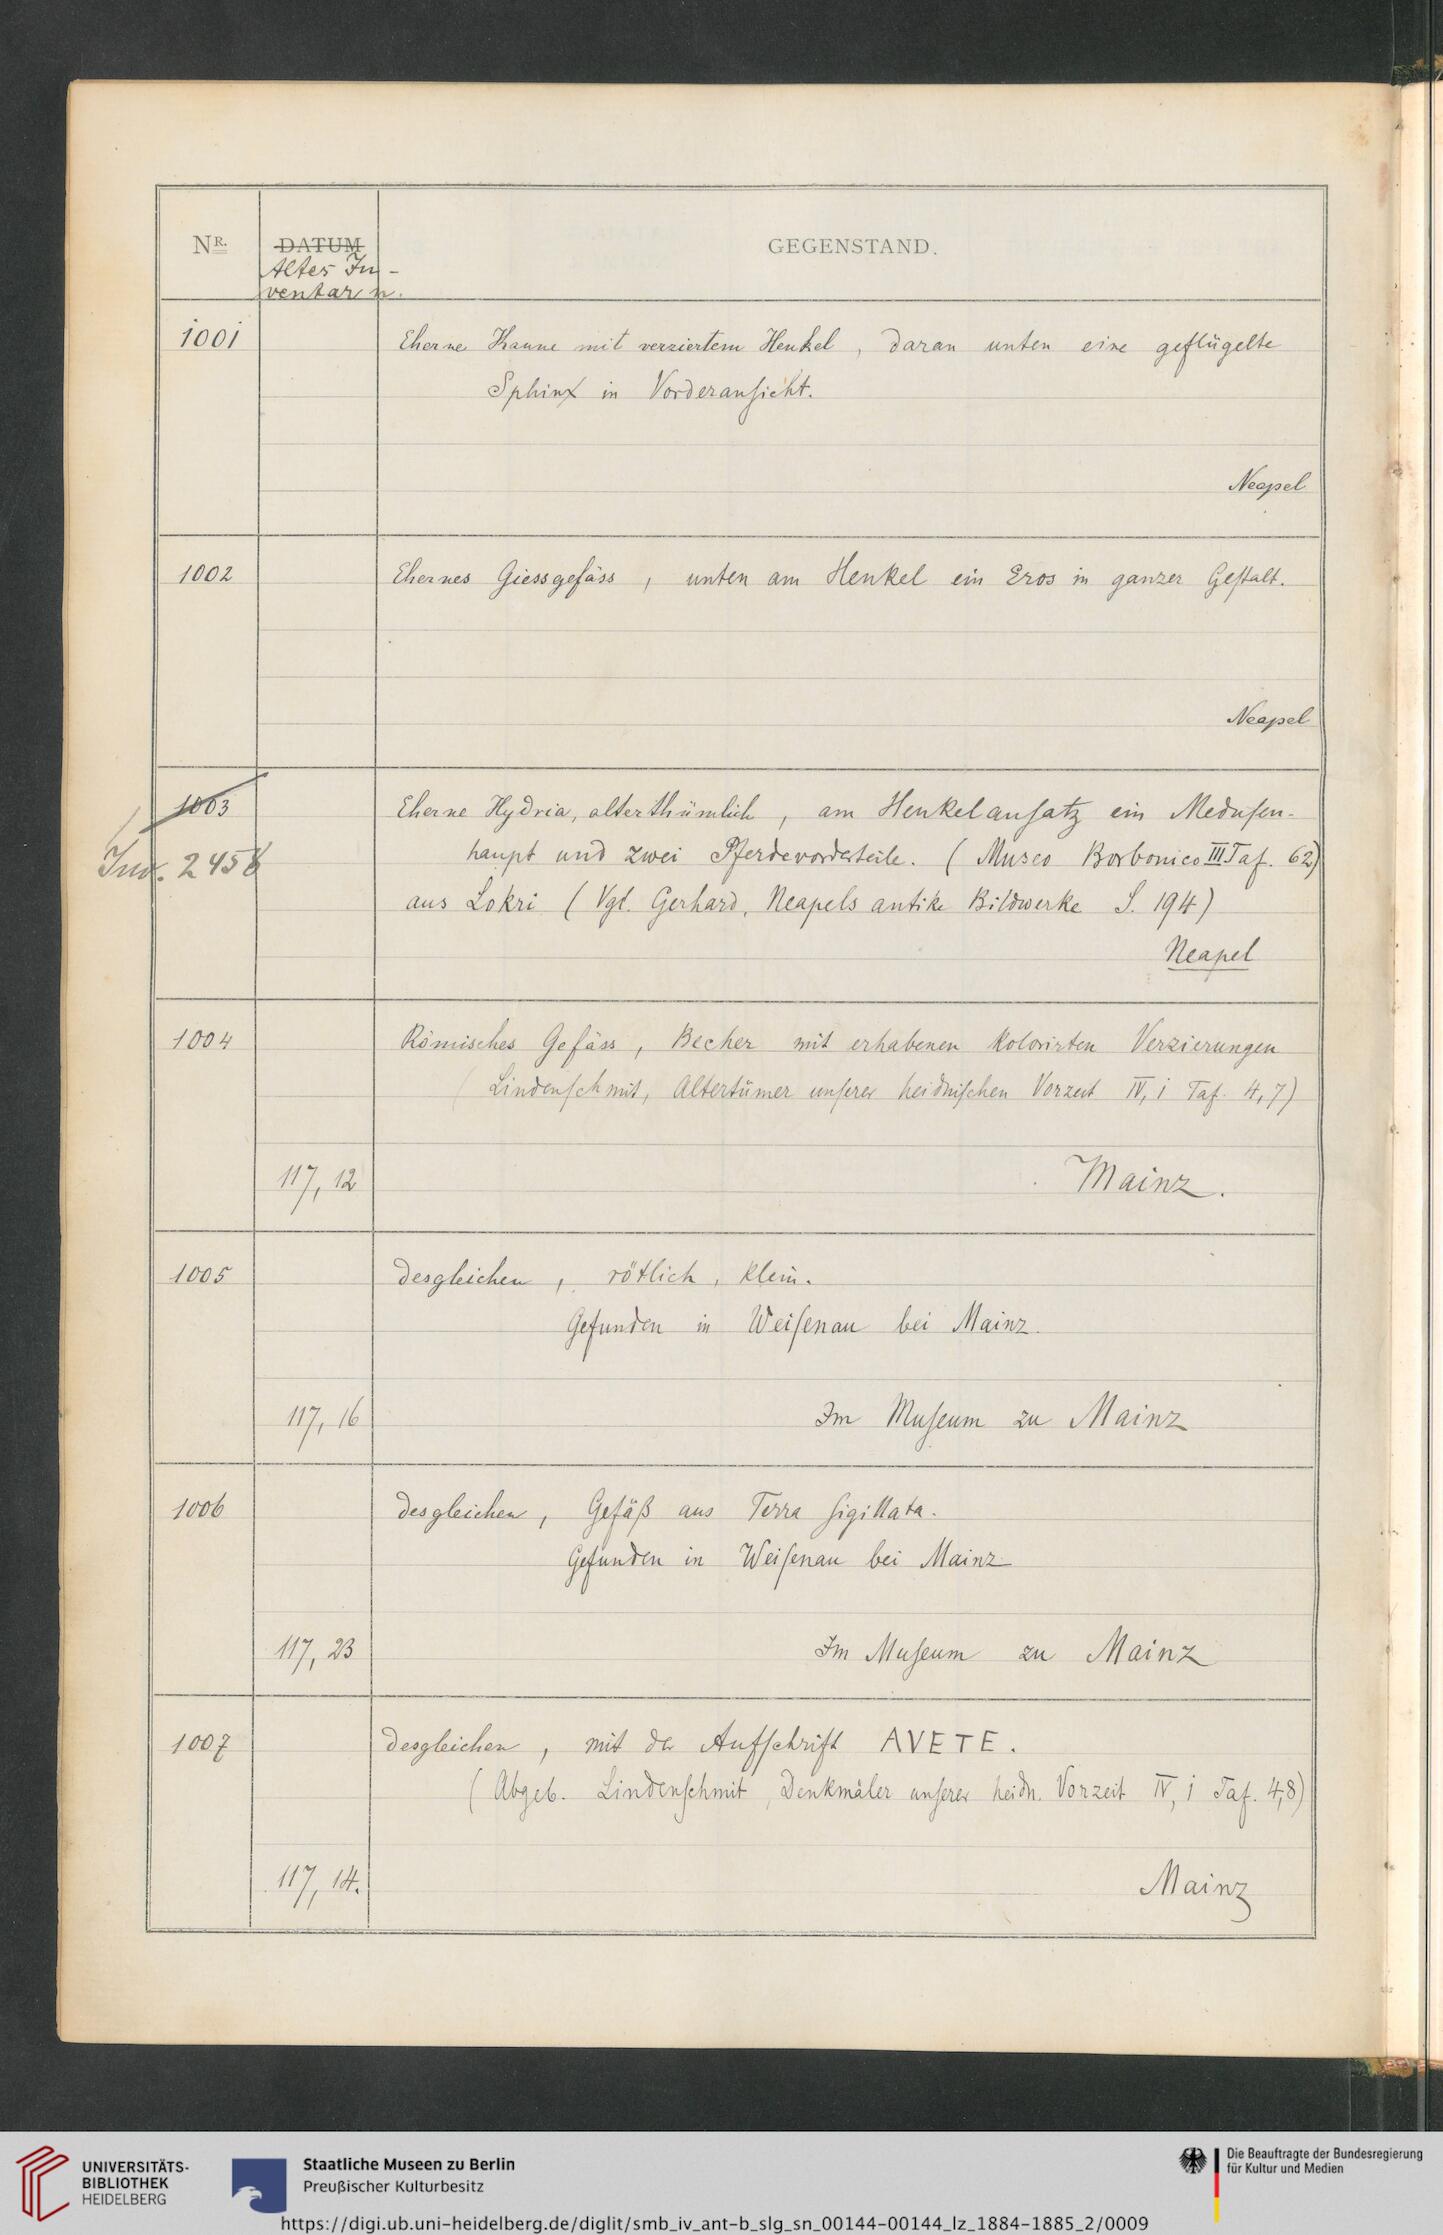 NR.
DATUM
GEGENSTAND.
Altes In-
ventar n.
1001
Eherne Kanne mit verziertem Henkel, daran unten eine geflügelte
Sphinx in Vorderansicht.
Neapel
1002
Ehernes Giessgefäss, unten am Henkel ein Eros in ganzer Gestalt.
Neapel
1003
Inv. 2458
Eherne Hydria, alterthümlich, am Henkelansatz ein Medusen-
haupt und zwei Pferdevorderteile. (Museo Borbonico III Taf. 62)
aus Lokri (Vgl. Gerhard, Neapels antike Bildwerke S. 194)
Neapel
1004
Römisches Gefäss, Becher mit erhabenen kolorirten Verzierungen
(Lindenschmit, Altertümer unserer heidnischen Vorzeit IV, 1 Taf. 4, 7)
117, 12
Mainz.
1005
desgleichen, rötlich, klein.
Gefunden in Weisenau bei Mainz.
117, 16
Im Museum zu Mainz
1006
desgleichen, Gefäß aus Terra sigillata.
Gefunden in Weisenau bei Mainz
117, 23
Im Museum zu Mainz
1007
desgleichen, mit der Aufschrift AVETE.
(Abgeb. Lindenschmit, Denkmäler unserer heidn. Vorzeit IV, 1 Taf. 4,8)
117, 14.
Mainz
UNIVERSITÄTS-
BIBLIOTHEK
HEIDELBERG
Staatliche Museen zu Berlin
Preußischer Kulturbesitz
Die Beauftragte der Bundesregierung
für Kultur und Medien
https://digi.ub.uni-heidelberg.de/diglit/smb_iv_ant-b_slg_sn_00144-00144_lz_1884-1885_2/0009